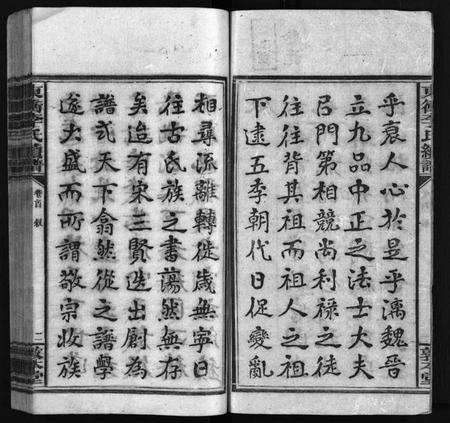 乎衰人心於是乎漓魏晉
立九品中正之法士大夫
各門第相競尚利祿之徒
往往背其祖而祖人之祖
下逮五季朝代日促變亂
相尋流離轉徙歲無寧日
往古氏族之書蕩然無存
矣迨有宋三賢迭出創為
譜式天下翕然從之譜學
遂大盛而所謂敬宗收族
東衝李氏續譜
卷首 敘
二